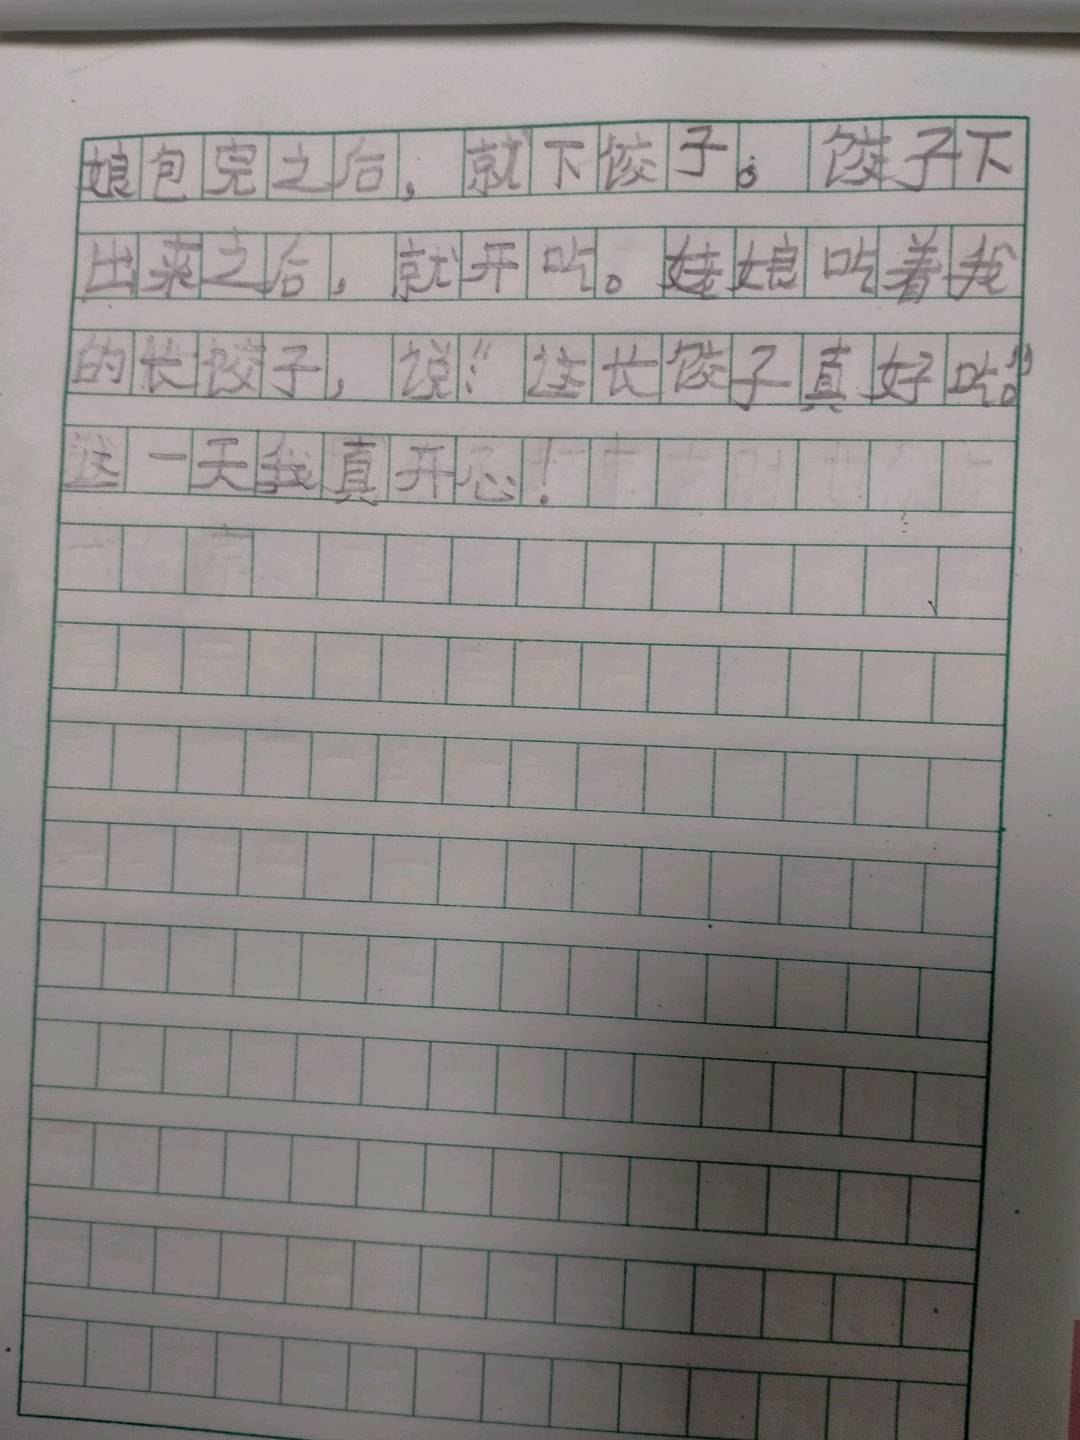 娘包完之后，就下饺子。饺子下
出来之后，就开吃。姥娘吃着我
的长饺子，说：“这长饺子真好吃。”
这一天我真开心！